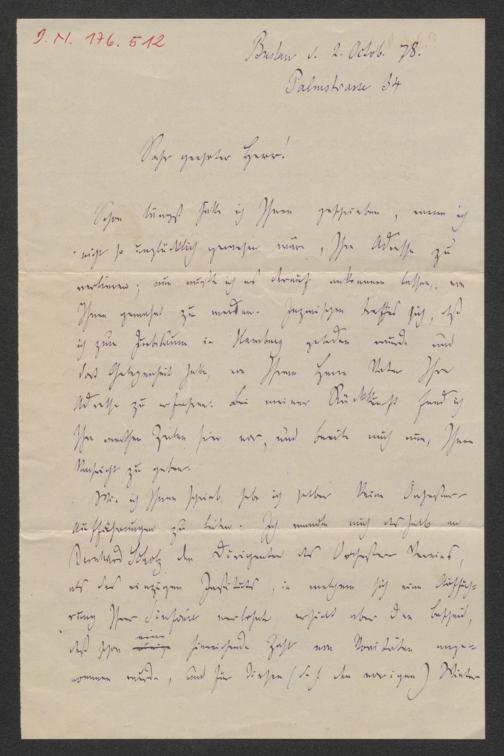 J. N. 176.512
Breslau d. 2. Octob. 78.
Palmstrasse 34
Sehr geehrter Herr!
Schon längst hätte ich Ihnen geschrieben, wenn ich
nicht so unglücklich gewesen wäre, Ihre Adresse zu
verlieren; nun mußte ich es darauf ankommen lassen, von
Ihnen gemahnt zu werden. Inzwischen traf es sich, daß
ich zum Jubiläum in Hamburg geladen wurde und
dort Gelegenheit hatte, von Ihrem Herrn Vater Ihre
Adresse zu erfahren. Bei meiner Rückkunft fand ich
Ihre werthen Zeilen hier vor, und beeile mich nun, Ihnen
Nachricht zu geben.
Wie ich Ihnen schrieb, habe ich selber keine Orchester-
Aufführungen zu leiten. Ich wandte mich deshalb an
Bernhard Scholz den Dirigenten des Orchester Vereins,
als des einzigen Instituts, in welchem sich eine Auffüh-
rung Ihrer Sinfonie verlohnt, erhielt aber den Bescheid,
daß schon eine hinreichende Zahl von Novitäten ange-
nommen wurde, und für diesen (d. h. den vorigen) Winter